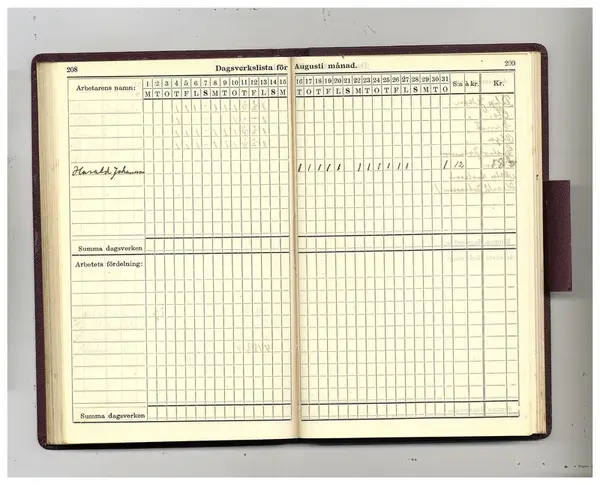 208 Dagsverkslista för Augusti månad. 209
Arbetarens namn: 1 2 3 4 5 6 7 8 9 10 11 12 13 14 15 16 17 18 19 20 21 22 23 24 25 26 27 28 29 30 31 S:a à kr. Kr.
M T O T F L S M T O T F L S M T O T F L S M T O T F L S M T O
Harald Johansson 1 1 1 1 1 1 1 1 1 1 1 1 12
Summa dagsverken
Arbetets fördelning:
Summa dagsverken